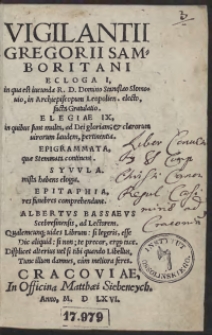 VIGILANTII
GREGORII SAM-
BORITANI
ECLOGA I,
in qua est iucunda R. D. Domino Stanislao Slomo-
wio, in Archiepiscopum Leopolien. electo,
facta Gratulatio.
ELEGIAE IX,
in quibus sunt multa, ad Dei gloriam, & clarorum
uirorum laudem, pertinentia.
EPIGRAMMATA,
quæ Stemmata continent.
SYVVLA,
mista habens elogia.
EPITAPHIA,
res funebres comprehendunt.
ALBERTVS BASSAEVS
Szebresinensis, ad Lectorem.
Qualemcunq; uides Librum: si legeris, esse
Dic aliquid: si non; te precor, ergo tace.
Displicet alterius uel si tibi quando Libellus,
Tunc illum damnes, cum meliora feres.
CRACOVIAE,
In Officina Matthæi Siebeneych.
Anno, M. D LXVI.
Liber
Casi
INSTITUT
OSSOLIŃSKICH
17.979